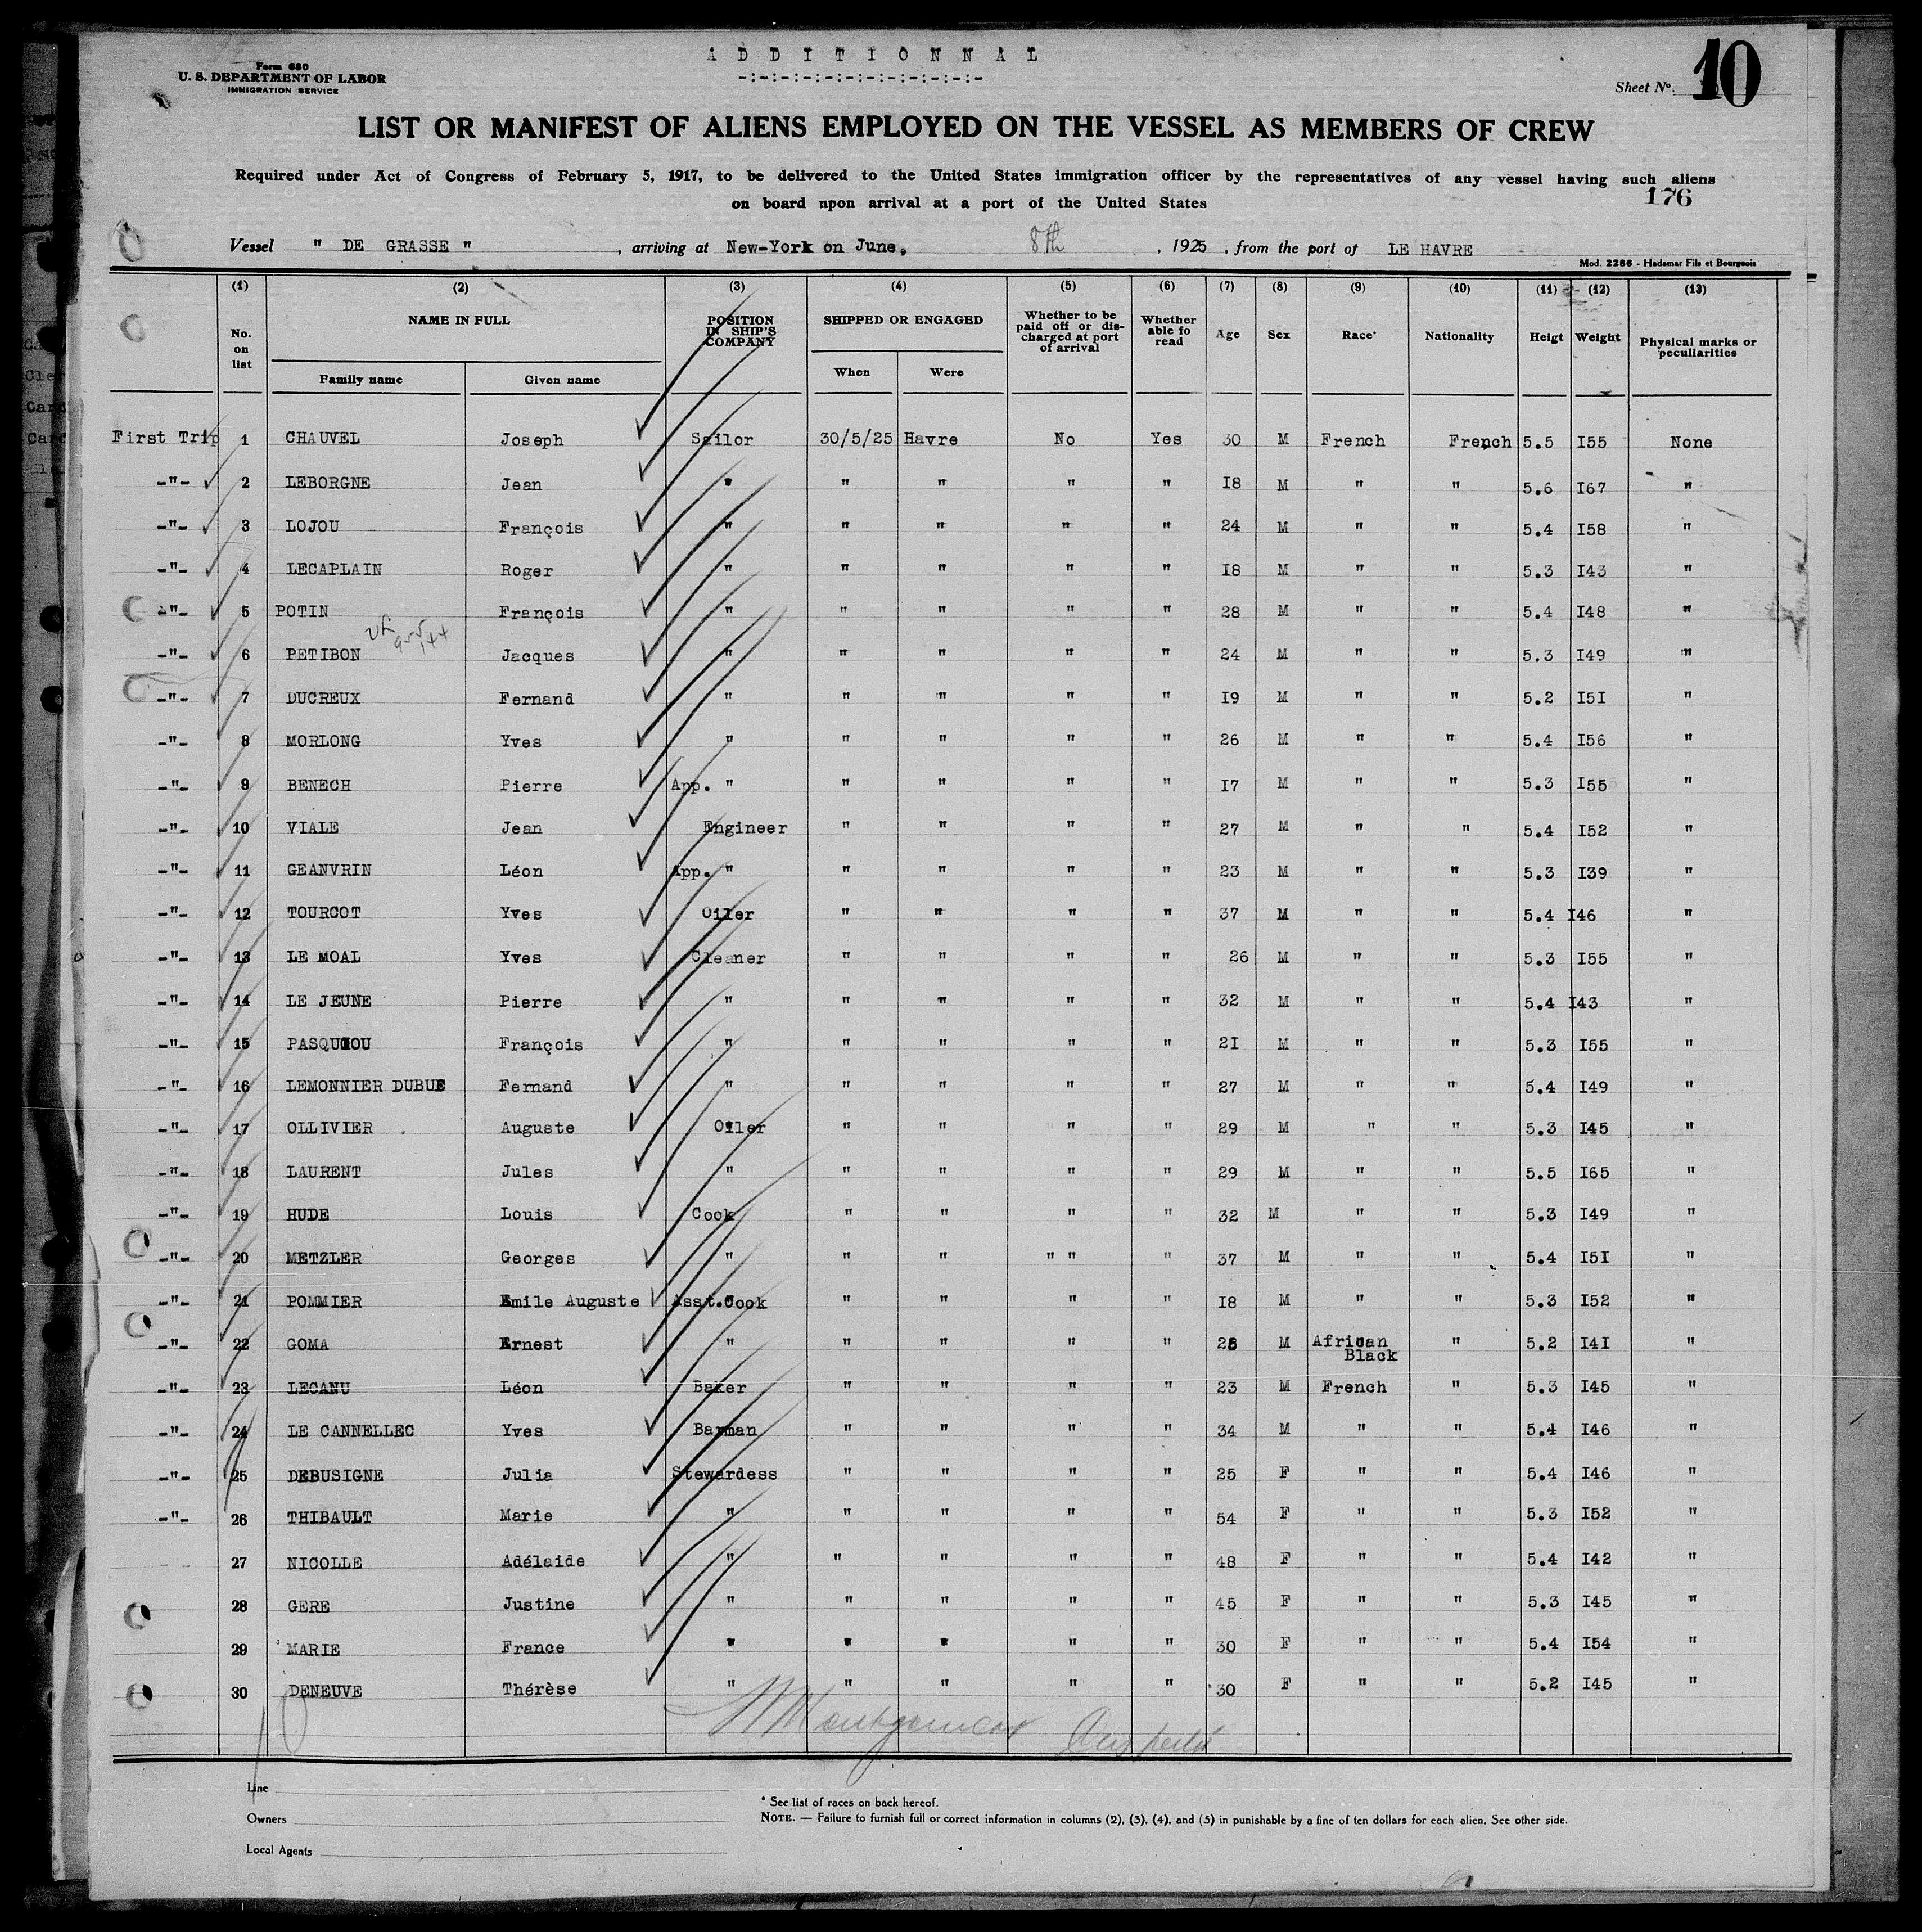 A D D I T I O N N A L
-:-:-:-:-:-:-:-:-:-:-:-
Form 680
U. S. DEPARTMENT OF LABOR
IMMIGRATION SERVICE
Sheet No. 10
LIST OR MANIFEST OF ALIENS EMPLOYED ON THE VESSEL AS MEMBERS OF CREW
Required under Act of Congress of February 5, 1917, to be delivered to the United States immigration officer by the representatives of any vessel having such aliens
on board npon arrival at a port of the United States
176
Vessel " DE GRASSE " , arriving at New-York on June, 8th , 1925 , from the port of LE HAVRE
Mod. 2286 - Hademar Fils et Bourgeois
(1) (2) (3) (4) (5) (6) (7) (8) (9) (10) (11) (12) (13)
No. on list NAME IN FULL POSITION IN SHIP'S COMPANY SHIPPED OR ENGAGED Whether to be paid off or discharged at port of arrival Whether able fo read Age Sex Race* Nationality Heigt Weight Physical marks or peculiarities
Family name Given name When Were
First Trip 1 CHAUVEL Joseph Sailor 30/5/25 Havre No Yes 30 M French French 5.5 I55 None
-"- 2 LEBORGNE Jean " " " " " I8 M " " 5.6 I67 "
-"- 3 LOJOU François " " " " " 24 M " " 5.4 I58 "
-"- 4 LECAPLAIN Roger " " " " " I8 M " " 5.3 I43 "
-"- 5 POTIN François " " " " " 28 M " " 5.4 I48 "
-"- 6 PETIBON Jacques " " " " " 24 M " " 5.3 I49 "
-"- 7 DUCREUX Fernand " " " " " I9 M " " 5.2 I5I "
-"- 8 MORLONG Yves " " " " " 26 M " " 5.4 I56 "
-"- 9 BENECH Pierre App. " " " " " I7 M " " 5.3 I55 "
-"- 10 VIALE Jean Engineer " " " " 27 M " " 5.4 I52 "
-"- 11 GEANVRIN Léon App. " " " " " 23 M " " 5.3 I39 "
-"- 12 TOURCOT Yves Oiler " " " " 37 M " " 5.4 I46 "
-"- 13 LE MOAL Yves Cleaner " " " " 26 M " " 5.3 I55 "
-"- 14 LE JEUNE Pierre " " " " " 32 M " " 5.4 I43 "
-"- 15 PASQUIOU François " " " " " 2I M " " 5.3 I55 "
-"- 16 LEMONNIER DUBUE Fernand " " " " " 27 M " " 5.4 I49 "
-"- 17 OLLIVIER Auguste Oiler " " " " 29 M " " 5.3 I45 "
-"- 18 LAURENT Jules " " " " " 29 M " " 5.5 I65 "
-"- 19 HUDE Louis Cook " " " " 32 M " " 5.3 I49 "
-"- 20 METZLER Georges " " " " " " 37 M " " 5.4 I5I "
-"- 21 POMMIER Emile Auguste Asst.Cook " " " " I8 M " " 5.3 I52 "
-"- 22 GOMA Ernest " " " " " M African Black " 5.2 I4I "
-"- 23 LECANU Léon Baker " " " " 23 M French " 5.3 I45 "
-"- 24 LE CANNELLEC Yves Barman " " " " 34 M " " 5.4 I46 "
-"- 25 DEBUSIGNE Julia Stewardess " " " " 25 F " " 5.4 I46 "
-"- 26 THIBAULT Marie " " " " " 54 F " " 5.3 I52 "
27 NICOLLE Adélaide " " " " " 48 F " " 5.4 I42 "
28 GERE Justine " " " " " 45 F " " 5.3 I45 "
29 MARIE France " " " " " 30 F " " 5.4 I54 "
30 DENEUVE Thérèse " " " " " 30 F " " 5.2 I45 "
10
Line
Owners
Local Agents
* See list of races on back hereof.
NOTE. — Failure to furnish full or correct information in columns (2), (3), (4), and (5) in punishable by a fine of ten dollars for each alien. See other side.